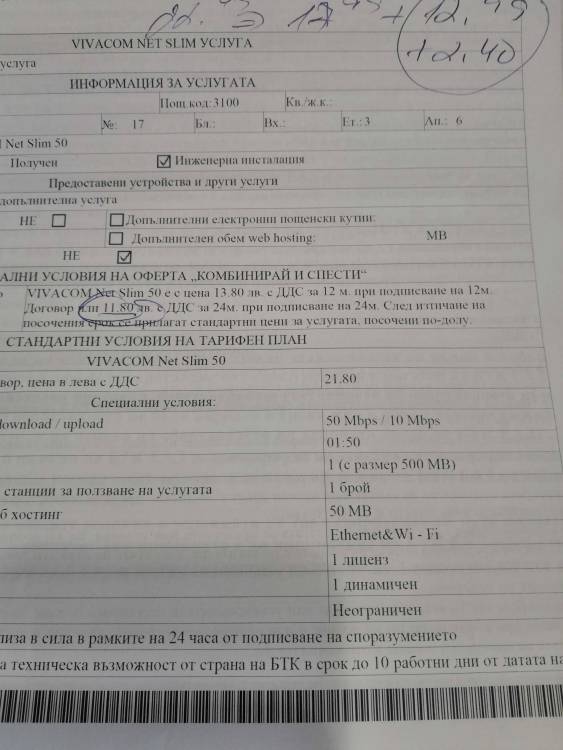 = 17 + 12,49
+2.40
VIVACOM NET SLIM УСЛУГА
услуга
ИНФОРМАЦИЯ ЗА УСЛУГАТА
Пощ.код:3100 Кв./ж.к.:
№: 17 Бл.: Вх.: Ет.: 3 Ап.: 6
Net Slim 50
Получен ☑ Инженерна инсталация
Предоставени устройства и други услуги
допълнителна услуга
НЕ ☐ ☐ Допълнителни електронни пощенски кутии:
☐ Допълнителен обем web hosting: MB
НЕ ☑
АЛНИ УСЛОВИЯ НА ОФЕРТА „КОМБИНИРАЙ И СПЕСТИ“
VIVACOM Net Slim 50 е с цена 13.80 лв. с ДДС за 12 м. при подписване на 12м.
Договор или 11.80 лв. с ДДС за 24м. при подписване на 24м. След изтичане на
посочения срок се прилагат стандартни цени за услугата, посочени по-долу.
СТАНДАРТНИ УСЛОВИЯ НА ТАРИФЕН ПЛАН
VIVACOM Net Slim 50
вор, цена в лева с ДДС 21.80
Специални условия:
download / upload 50 Mbps / 10 Mbps
01:50
1 (с размер 500 MB)
станции за ползване на услугата 1 брой
б хостинг 50 MB
Ethernet&Wi - Fi
1 лиценз
1 динамичен
Неограничен
лиза в сила в рамките на 24 часа от подписване на споразумението
а техническа възможност от страна на БТК в срок до 10 работни дни от датата на